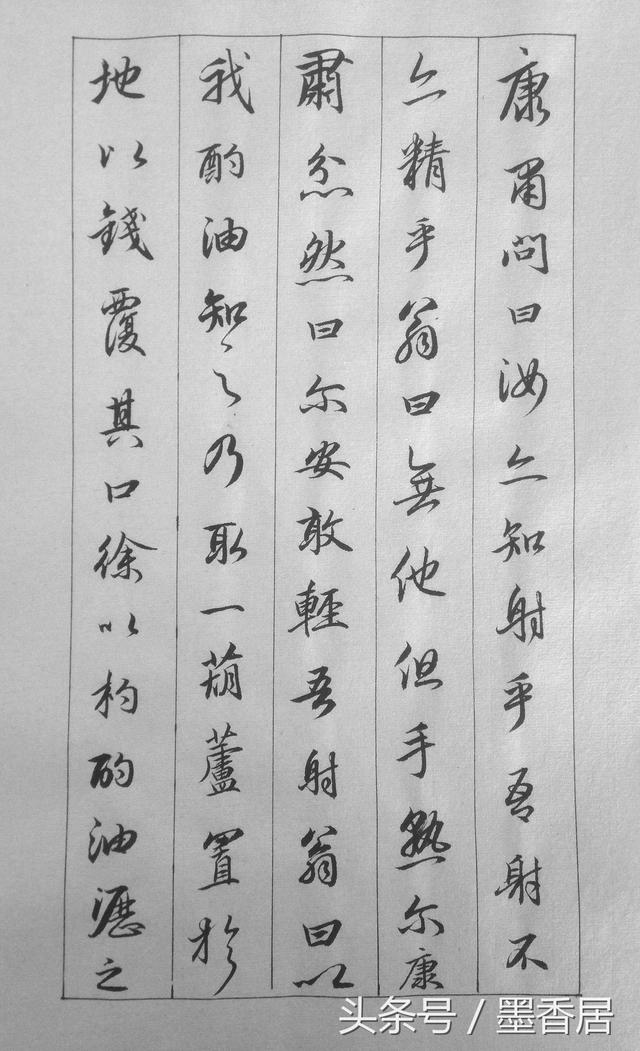 康肅問曰汝亦知射乎吾射不
亦精乎翁曰無他但手熟尔康
肅忿然曰尔安敢輕吾射翁曰以
我酌油知之乃取一葫蘆置於
地以錢覆其口徐以杓酌油瀝之
头条号 / 墨香居